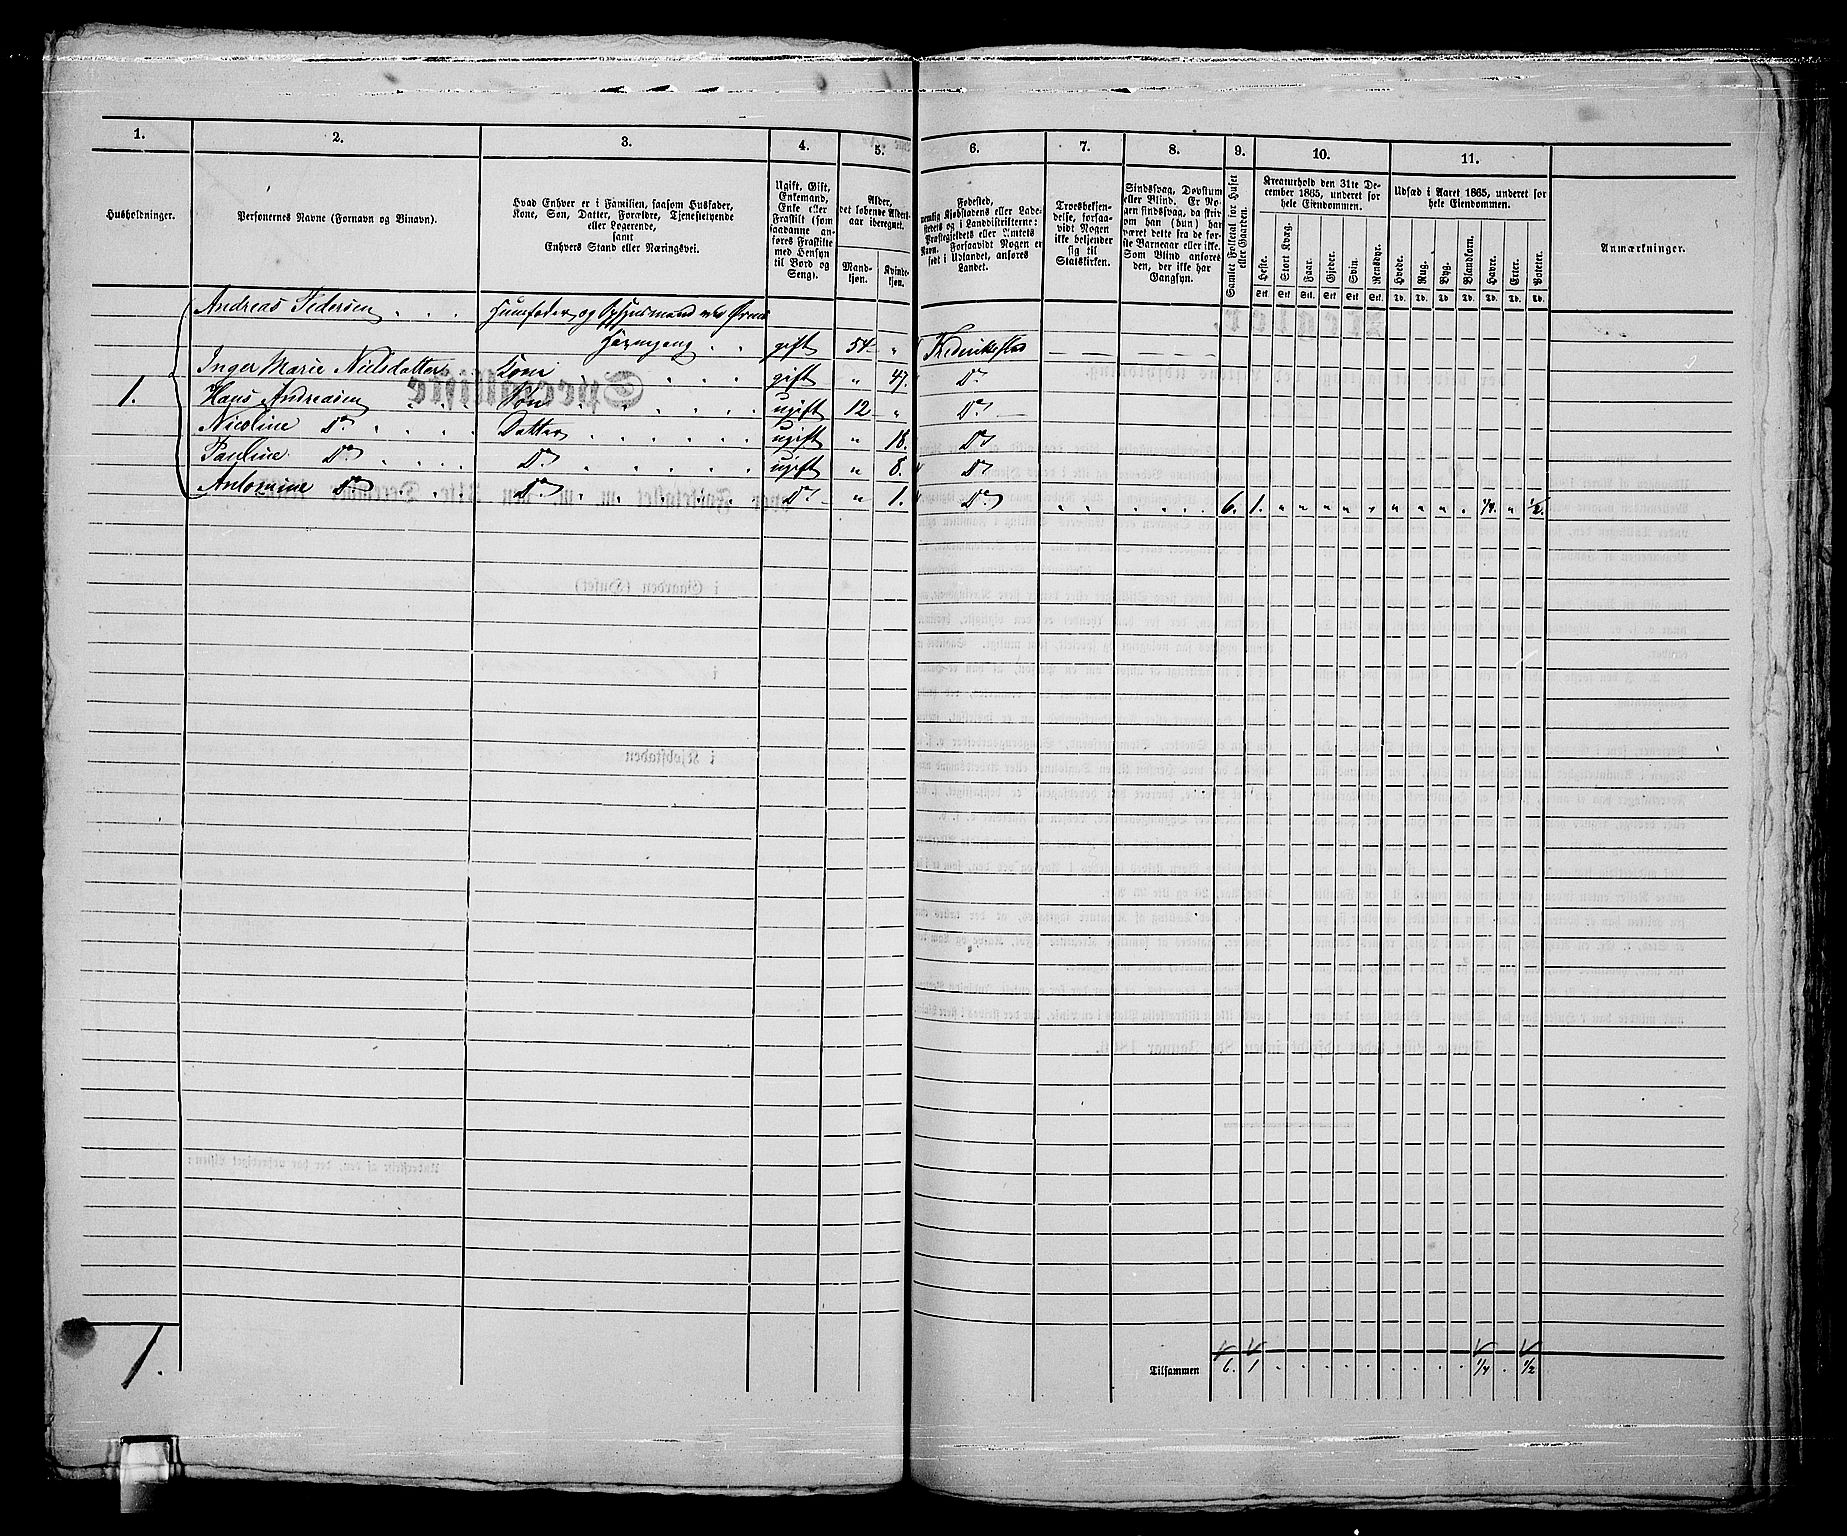 1.
2.
3.
4.
5.
6.
7.
8.
9.
10.
11.
Husholdninger.
Personernes Navne (Fornavn og Binavn).
Hvad Enhver er i Familien, saasom Husfader,
Kone, Søn, Datter, Forældre, Tjenestetyende
eller Logerende,
samt
Enhvers Stand eller Næringsvei.
Ugift, Gift,
Enkemand,
Enke eller
Fraskilt (som
saadanne an-
føres Fraskilte
med Hensyn
til Bord og
Seng).
Alder,
det løbende Alders-
aar iberegnet.
Mand-
kjøn.
Kvinde-
kjøn.
Fødested,
nemlig Kjøbstadens eller Lade-
stedets og i Landdistrikterne:
Præstegjeldets eller Amtets
Navn. Forsaavidt Nogen er
født i Udlandet, anføres
Landet.
Troesbekjen-
delse, forsaa-
vidt Nogen
ikke bekjender
sig til
Statskirken.
Sindssvag, Døvstum
eller Blind. Er No-
gen sindssvag, da hvis
som han (hun) har
været dette fra de før-
ste Barneaar eller ikke.
Som Blind anføres
den, der ikke har
Gangsyn.
Samlet Folketal for Huset
eller Gaarden.
Kreaturhold den 31te De-
cember 1865, underet for
hele Eiendommen.
Heste.
Stort Kvæg.
Faar.
Gjeder.
Svin.
Rensdyr.
Stk. Stk. Stk. Stk. Stk. Stk.
Udsæd i Aaret 1865, underet for
hele Eiendommen.
Hvede.
Rug.
Byg.
Blandkorn.
Havre.
Erter.
Poteter.
Td. Td. Td. Td. Td. Td. Td.
Anmærkninger.
Andreas Pedersen . . . Huusfader og Opsynsmand ved
. . gift 54 " Frederikstad
Inger Marie Nielsdatter Kone . . . . gift " 47. Do
1. Hans Andreasen . . Søn . . . . ugift 12 " Do
Nicoline Do . . . . Datter . . . . . . ugift " 18. Do
Pauline Do . . . . Do . . . . . . ugift " 8. Do
Antonine Do . . . Do . . . . . . Do " 1. Do " " . . . . 6. 1. " " " " " " " " . 1/4. " 1/2.
1.
Tilsammen 6. 1 . . . . . . . . . 1/4 . 1/2